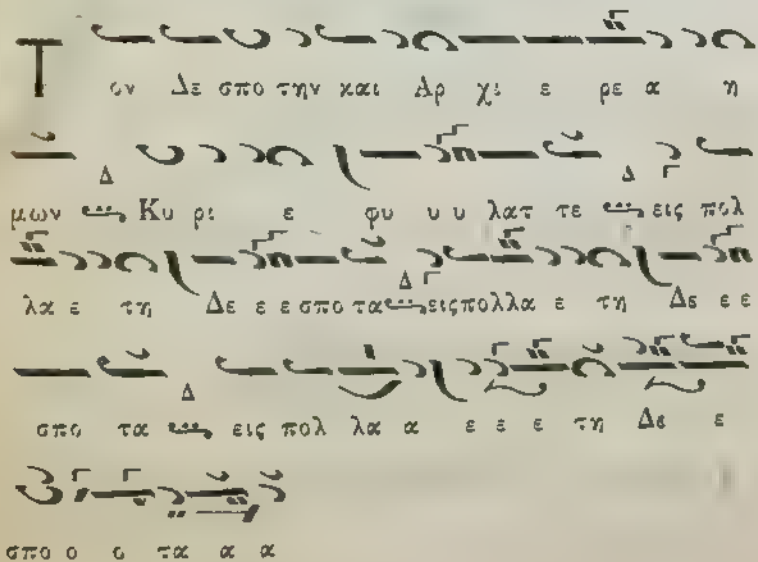 Τ ον Δε σπο την και Αρ χι ε ρε α η
μων Δ Κυ ρι ε φυ υ υ λατ τε Δ εις πολ
λα ε τη Δε ε ε σπο τα Δ εις πολλα ε τη Δε ε ε
σπο τα Δ εις πολ λα α ε ε ε τη Δε ε
σπο ο ο τα α α